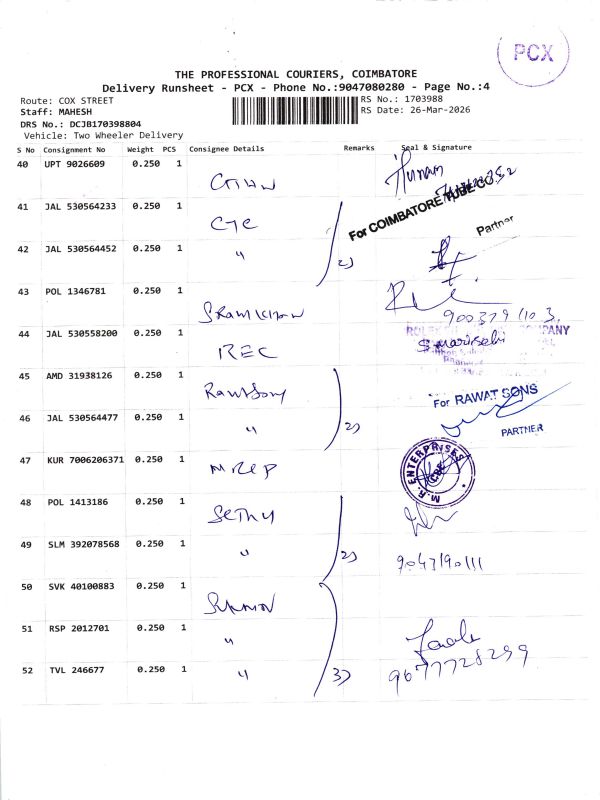 PCX
THE PROFESSIONAL COURIERS, COIMBATORE
Delivery Runsheet - PCX - Phone No.:9047080280 - Page No.:4
Route: COX STREET
RS No.: 1703988
Staff: MAHESH
RS Date: 26-Mar-2026
DRS No.: DCJB170398804
Vehicle: Two Wheeler Delivery
S No Consignment No Weight PCS Consignee Details Remarks Seal & Signature
40 UPT 9026609 0.250 1
41 JAL 530564233 0.250 1 CTC
For COIMBATORE TUBE CO.
Partner
42 JAL 530564452 0.250 1 " 2)
43 POL 1346781 0.250 1
44 JAL 530558200 0.250 1 REC
COMPANY
45 AMD 31938126 0.250 1 RawtSony
For RAWAT SONS
46 JAL 530564477 0.250 1 " 2)
PARTNER
47 KUR 7006206371 0.250 1 MREP
M.R. ENTERPRISES
CBE
48 POL 1413186 0.250 1 Sethu
49 SLM 392078568 0.250 1 " 2)
9043190111
50 SVK 40100883 0.250 1
51 RSP 2012701 0.250 1 "
52 TVL 246677 0.250 1 " 3)
9677728299